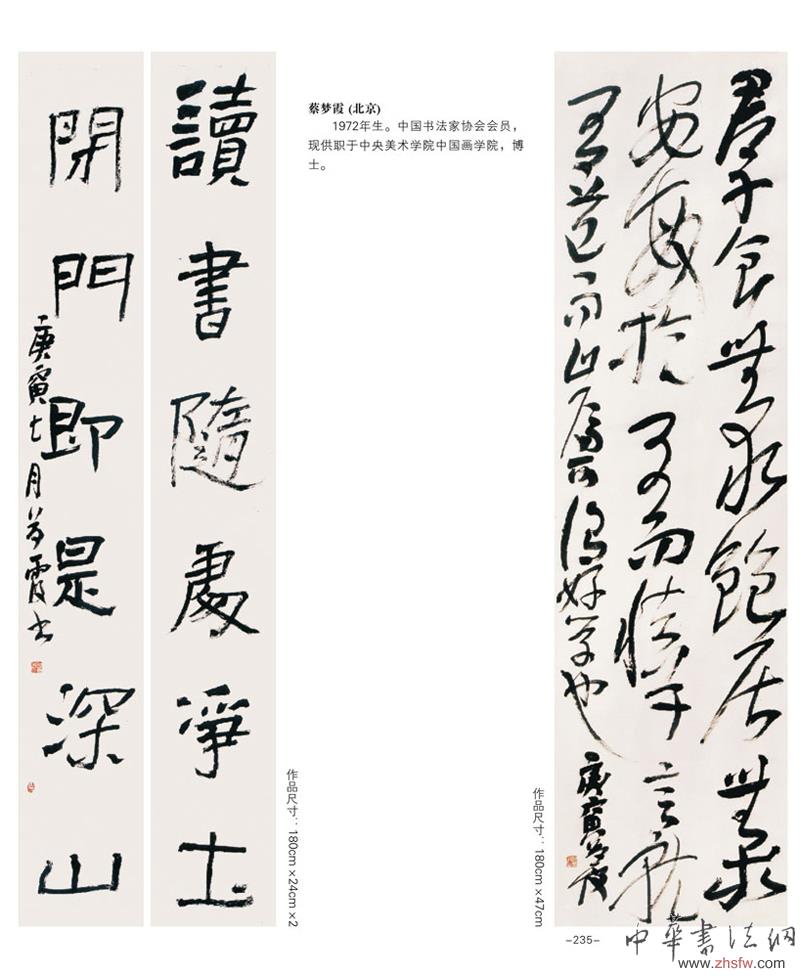 讀書隨處淨土
閉門即是深山
庚寅七月夢霞书
作品尺寸：180cm×24cm×2
蔡梦霞 (北京)
1972年生。中国书法家协会会员，
现供职于中央美术学院中国画学院，博
士。
君子食無求飽居無求
安敏於事而慎于言就
有道而正焉可謂好學也
庚寅夢霞
作品尺寸：180cm×47cm
-235-
中華書法網
www.zhsfw.com